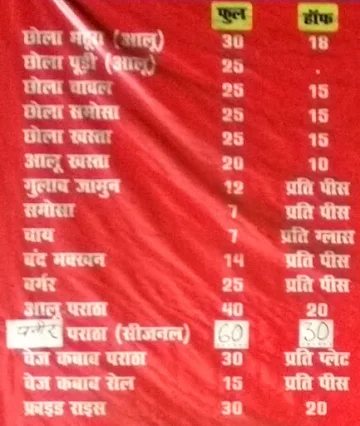 फुल हॉफ
छोला भटूरा (आलू) 30 18
छोला पूड़ी (आलू) 25
छोला चावल 25 15
छोला समोसा 25 15
छोला खस्ता 25 15
आलू खस्ता 20 10
गुलाब जामुन 12 प्रति पीस
समोसा 7 प्रति पीस
चाय 7 प्रति ग्लास
बंद मक्खन 14 प्रति पीस
बर्गर 25 प्रति पीस
आलू पराठा 40 20
पनीर पराठा (सीजनल) 60 30
वेज कबाब पराठा 30 प्रति प्लेट
वेज कबाब रोल 15 प्रति पीस
फ्राइड राइस 30 20